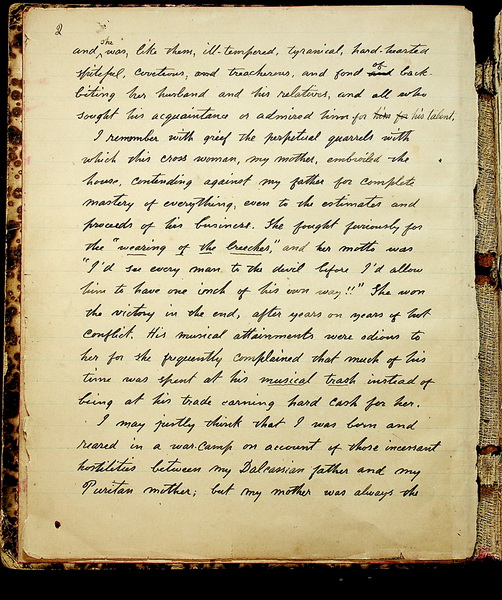 2
and she was, like them, ill-tempered, tyranical, hard-hearted
spiteful, coveteous, and treacherous, and fond and of back-
biting her husband and his relatives, and all who
sought his acquaintance or admired him for his talent.
I remember with grief the perpetual quarrels with
which this cross woman, my mother, embroiled the
house, contending against my father for complete
mastery of everything, even to the estimates and
proceeds of his business. She fought furiously for
the "wearing of the breeches," and her motto was
"I'd see every man to the devil before I'd allow
him to have one inch of his own way!!" She won
the victory in the end, after years on years of hot
conflict. His musical attainments were odious to
her for she frequently complained that much of his
time was spent at his musical trash instead of
being at his trade earning hard cash for her.
I may justly think that I was born and
reared in a war-camp on account of those incessant
hostilities between my Dalcassian father and my
Puritan mother; but my mother was always the